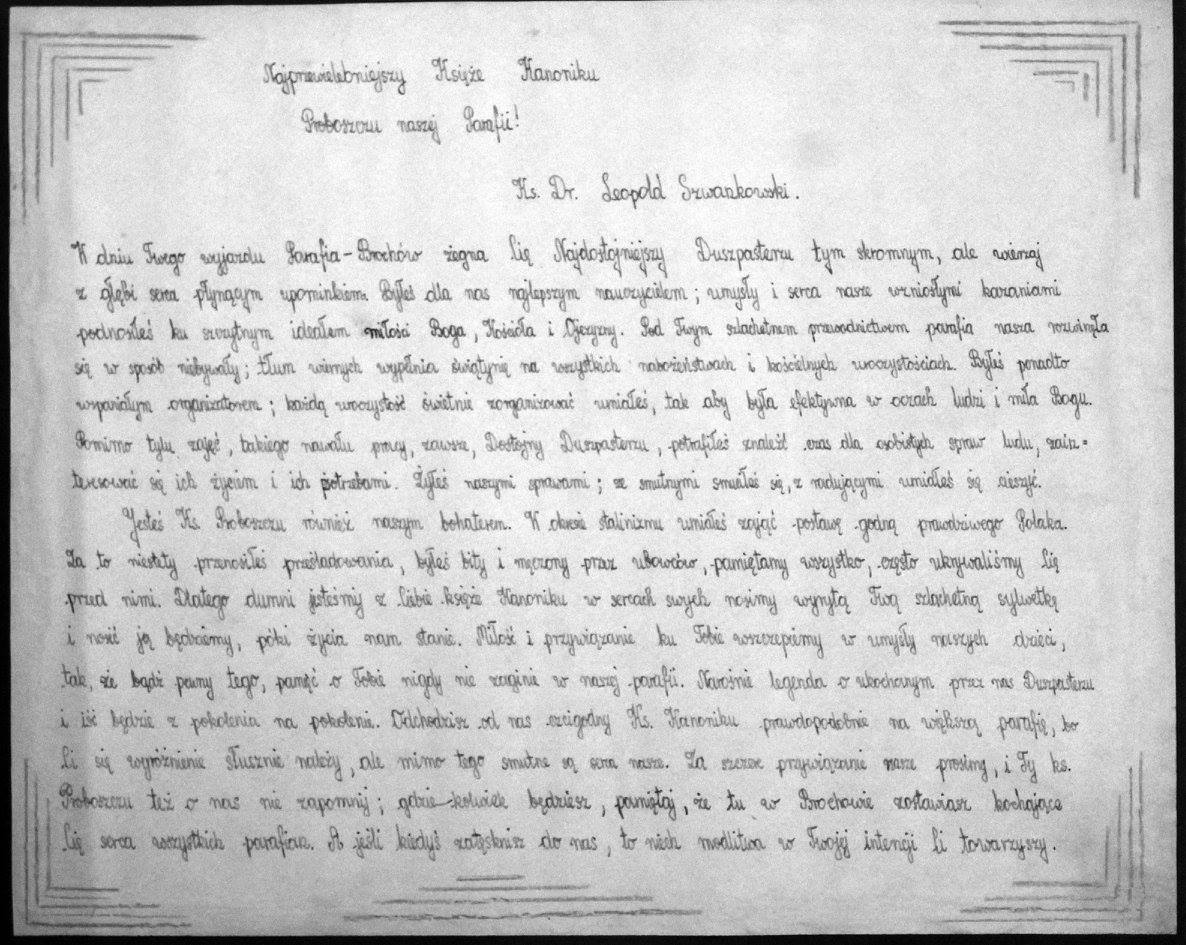 Najprzewielebniejszy Księże Kanoniku
Proboszczu naszej Parafii!
Ks. Dr. Leopold Szwankowski.
W dniu Twego wyjazdu Parafia – Brochów żegna Cię Najdostojniejszy Duszpasterzu tym skromnym, ale wierzaj
z głębi serca płynącym upominkiem. Byłeś dla nas najlepszym nauczycielem; umysły i serca nasze wzniosłymi kazaniami
podnosiłeś ku szczytnym ideałem miłości Boga, Kościoła i Ojczyzny. Pod Twym szlachetnem przewodnictwem parafia nasza rozwinęła
się w sposób niebywały; tłum wiernych wypełnia świątynię na wszystkich nabożeństwach i kościelnych uroczystościach. Byłeś ponadto
wspaniałym organizatorem; każdą uroczystość świetnie zorganizować umiałeś, tak aby była efektywna w oczach ludzi i miła Bogu.
Pomimo tylu zajęć, takiego nawału pracy, zawsze, Dostojny Duszpasterzu, potrafiłeś znaleźć czas dla osobistych spraw ludu, zain=
teresować się ich życiem i ich potrzebami. Żyłeś naszymi sprawami; ze smutnymi smuciłeś się, z radującymi umiałeś się cieszyć.
Jesteś Ks. Proboszczu również naszym bohaterem. W okresie stalinizmu umiałeś zająć postawę godną prawdziwego Polaka.
Za to niestety przenosiłeś prześladowania, byłeś bity i męczony przez ubowców, pamiętamy wszystko, często ukrywaliśmy Cię
przed nimi. Dlatego dumni jesteśmy z Ciebie księże Kanoniku w sercach swych nosimy wyrytą Twą szlachetną sylwetkę
i nosić ją będziemy, póki życia nam stanie. Miłość i przywiązanie ku Tobie wszczepiemy w umysły naszych dzieci,
tak, że bądź pewny tego, pamięć o Tobie nigdy nie zaginie w naszej parafii. Narośnie legenda o ukochanym przez nas Duszpasterzu
i iść będzie z pokolenia na pokolenie. Odchodzisz od nas czcigodny Ks. Kanoniku prawdopodobnie na większą parafię, bo
Ci się wyróżnienie słusznie należy, ale mimo tego smutne są serca nasze. Za szczere przywiązanie nasze prosimy, i Ty ks.
Proboszczu też o nas nie zapomnij; gdzie-kolwiek będziesz, pamiętaj, że tu w Brochowie zostawiasz kochające
Cię serca wszystkich parafian. A jeśli kiedyś zatęsknisz do nas, to niech modlitwa w Twojej intencji Ci towarzyszy.